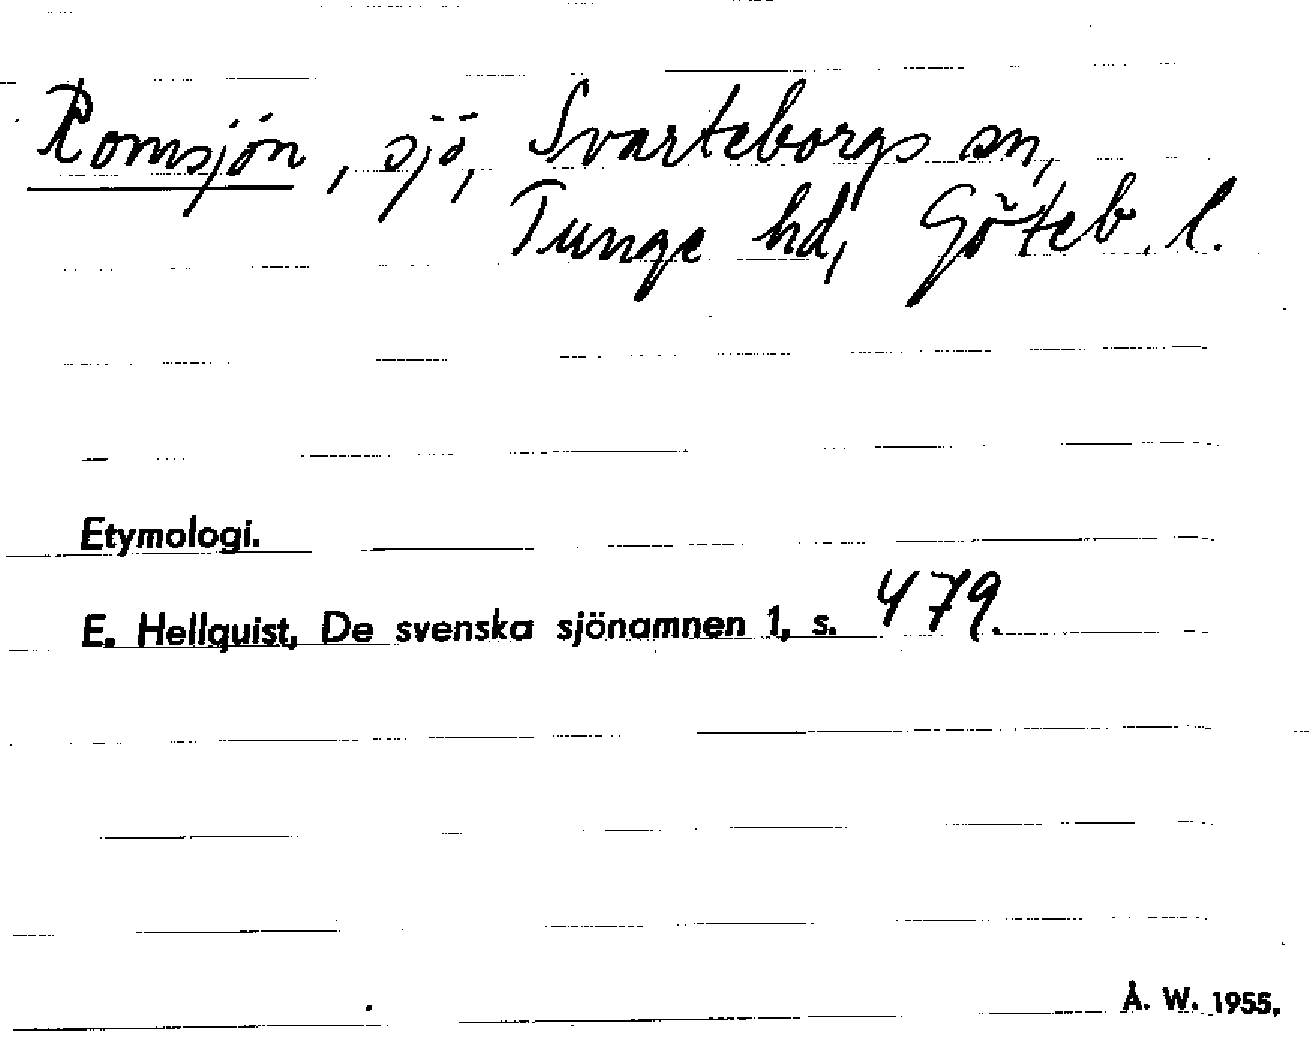 Romsjön, sjö, Svarteborgs sn,
Tunge hd, Göteb. l.
Etymologi.
E. Hellquist, De svenska sjönamnen 1, s. 479.
Å. W. 1955.